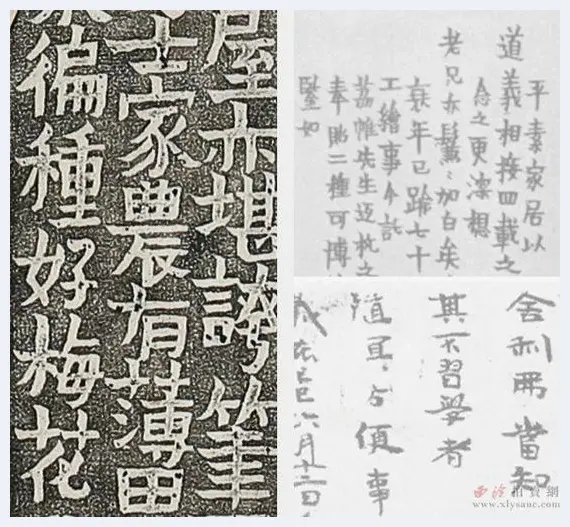 屋亦堪誇筆
士家農有薄田
徧種好梅花
平素家居以
道義相接四載之
念之更深想
老兄亦鬢〻加白矣
衰年已踰七十
工繪事今託
先生迋杭之
奉貽二種可博
堅如
舍利弗當知
其不習學者
隨宜方便事
巳六月十二日
西泠拍賣網
www.xlysauc.com